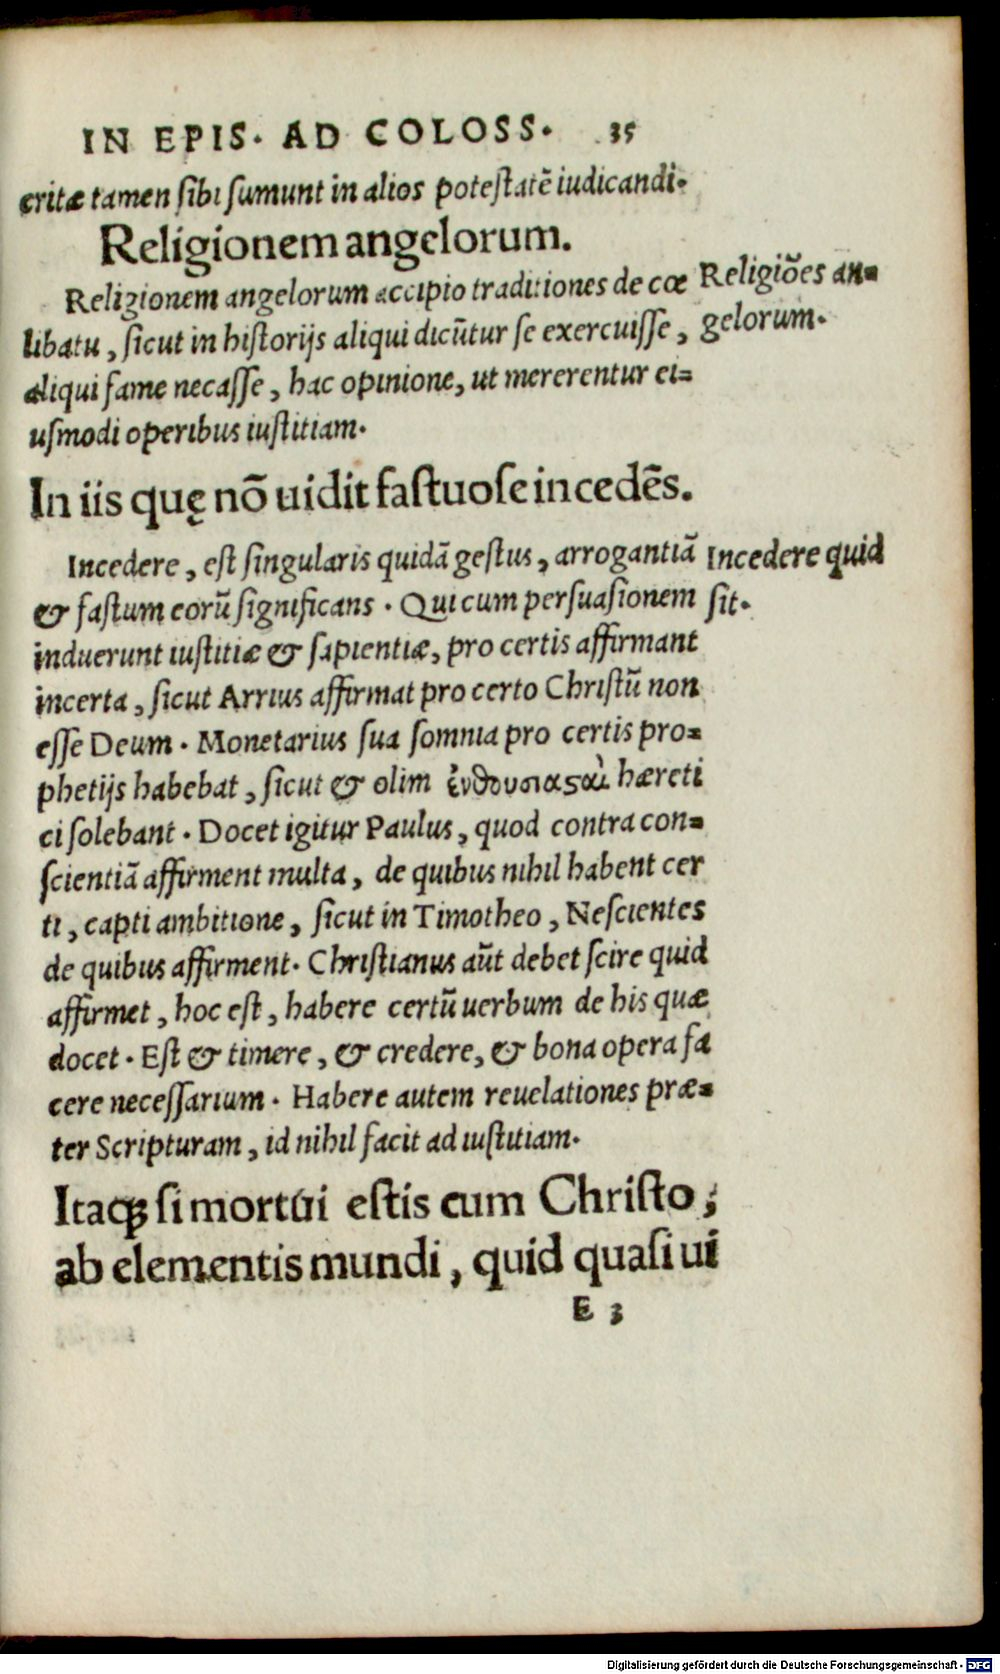 IN EPIS. AD COLOSS. 35
critæ tamen ſibi ſumunt in alios poteſtatē iudicandi.
Religionem angelorum.
Religionem angelorum accipio traditiones de cœ
libatu, ſicut in hiſtorijs aliqui dicūtur ſe exercuiſſe,
aliqui fame necaſſe, hac opinione, ut mererentur ei=
uſmodi operibus iuſtitiam.
Religiōes an=
gelorum.
In iis quę nō uidit faſtuoſe incedēs.
Incedere, eſt ſingularis quidā geſtus, arrogantiā
& faſtum eorū ſignificans. Qui cum perſuaſionem
induerunt iuſtitiæ & ſapientiæ, pro certis affirmant
incerta, ſicut Arrius affirmat pro certo Chriſtū non
eſſe Deum. Monetarius ſua ſomnia pro certis pro=
phetijs habebat, ſicut & olim ἐνθουσιαϛαὶ hæreti
ci ſolebant. Docet igitur Paulus, quod contra con=
ſcientiā affirment multa, de quibus nihil habent cer
ti, capti ambitione, ſicut in Timotheo, Neſcientes
de quibus affirment. Chriſtianus aūt debet ſcire quid
affirmet, hoc eſt, habere certū uerbum de his quæ
docet. Eſt & timere, & credere, & bona opera fa
cere neceſſarium. Habere autem reuelationes præ=
ter Scripturam, id nihil facit ad iuſtitiam.
Incedere quid
ſit.
Itaqꝫ ſi mortui eſtis cum Chriſto,
ab elementis mundi, quid quaſi ui
E 3
Digitalisierung gefördert durch die Deutsche Forschungsgemeinschaft - DFG